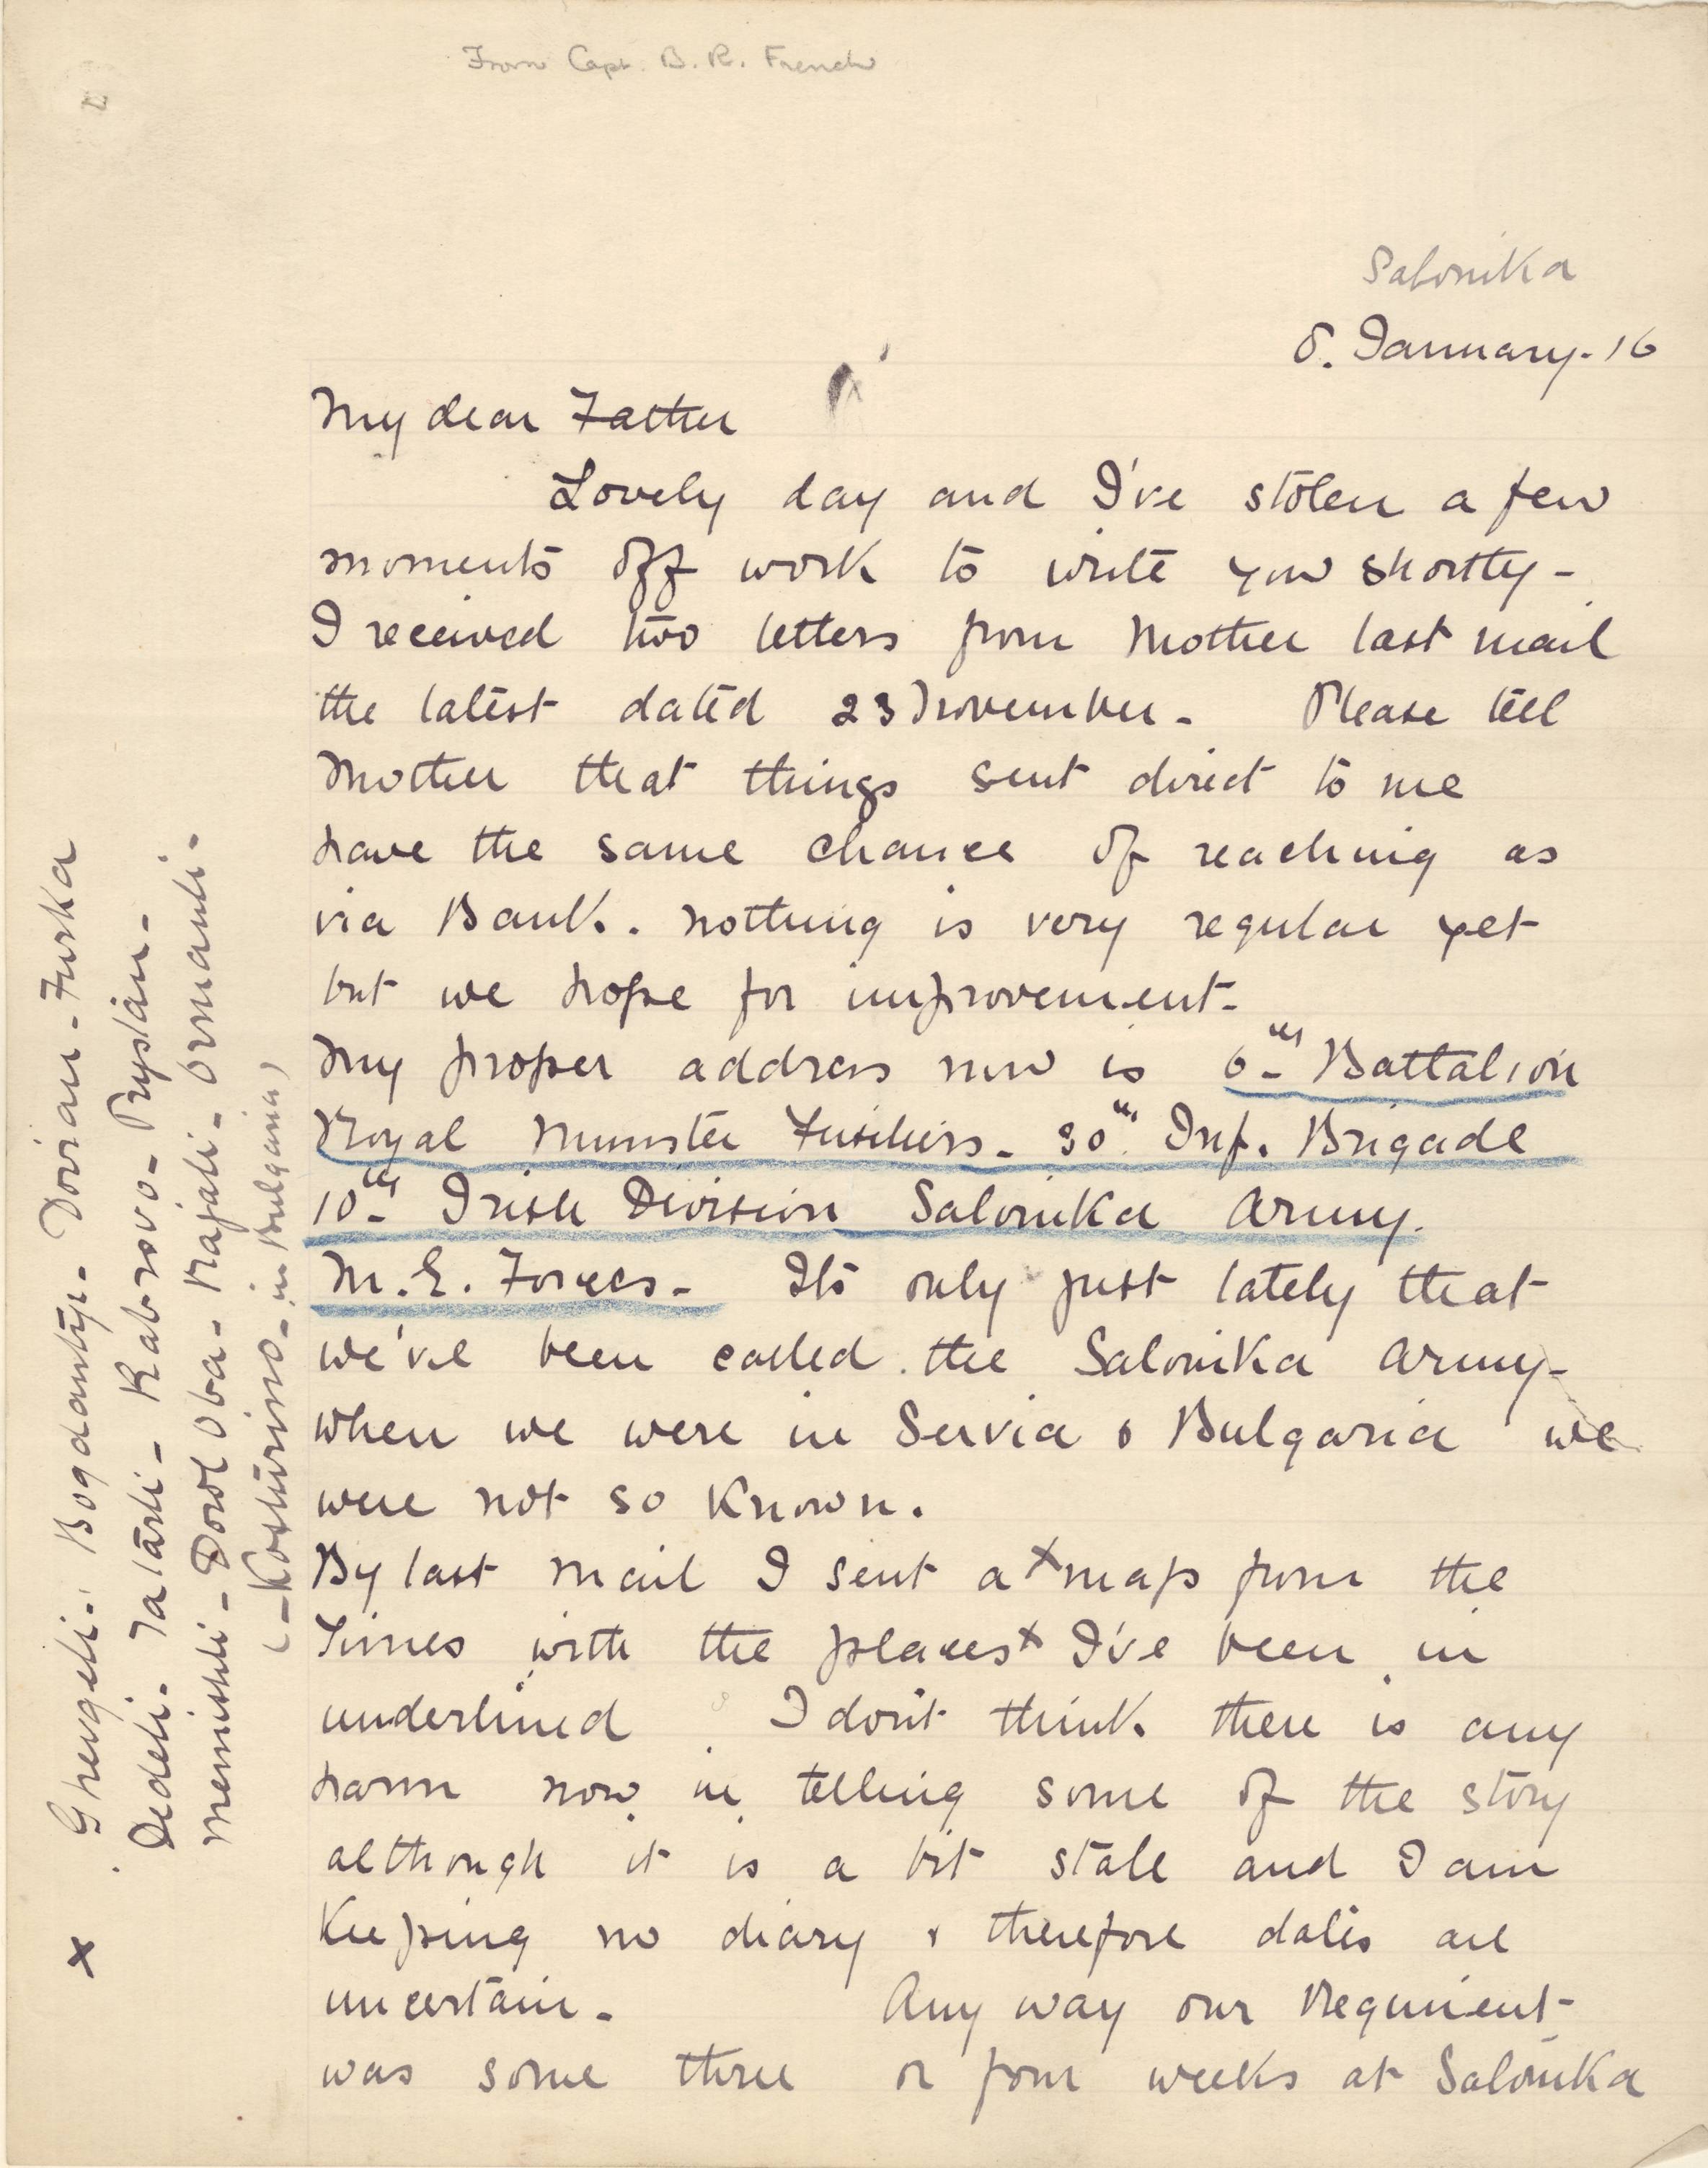 From Capt. B. R. French
Salonika
8. January. 16
My dear Father
Lovely day and I've stolen a few
moments off work to write you shortly -
I received two letters from Mother last mail
the latest dated 23 November - Please tell
Mother that things sent direct to me
have the same chance of reaching as
via Bank. Nothing is very regular yet
but we hope for improvement -
My proper address now is 6th Battalion
Royal Munster Fusiliers - 30th Inf. Brigade
10th Irish Division Salonika Army.
M. E. Forces - Its only just lately that
we've been called the Salonika Army -
When we were in Servia & Bulgaria we
were not so known.
By last mail I sent a x map from the
Times with the places x I've been in
underlined. I don't think there is any
harm now in telling some of the story
although it is a bit stale and I am
Keeping no diary & therefore dates are
uncertain - Any way our Regiment
was some three or four weeks at Salonika
x Ghevgeli - Bogdantzi - Doiran - Furka
Dedeli - Tatarli - Rabrovo - Prystan -
Memishli - Dorol Oba - Kajali - Ormanli -
( - Kosturino - in Bulgaria)